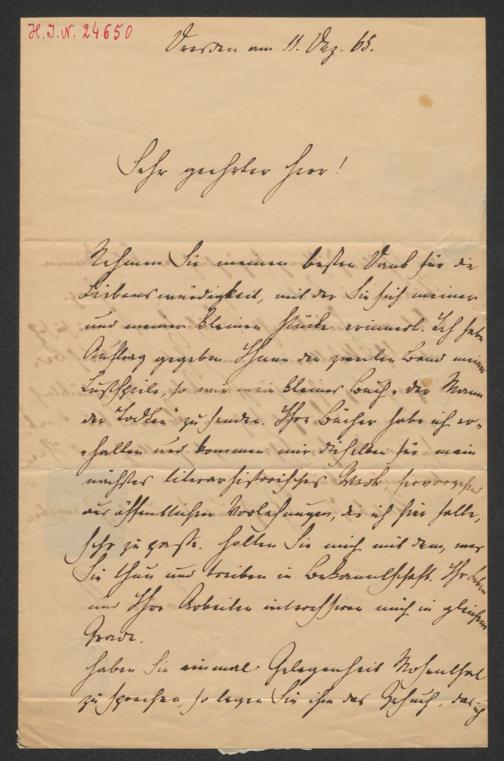 H. I. N. 24650
Dresden am 11. Dez. 65.
Sehr geehrter Herr!
Nehmen Sie meinen besten Dank für die
Liebenswürdigkeit, mit der Sie sich meiner
und meiner kleinen Stücke erinnert. Ich habe
Auftrag gegeben Ihnen den zweiten Band meiner
Lustspiele, so wie mein kleines Buch, der Mann
der Todten" zu senden. Ihre Bücher habe ich er-
halten und kommen mir dieselben für mein
nächstes literarhistorisches Werk, hervorgehend
aus öffentlichen Vorlesungen, die ich hier halte,
sehr zu passe. Halten Sie mich mit dem, was
Sie thun und treiben in Bekanntschaft. Ihr Leben
und Ihre Arbeiten interessiren mich in gleichem
Grade.
Haben Sie einmal Gelegenheit Mosenthal
zu sprechen, so legen Sie ihm das Gesuch, das ich